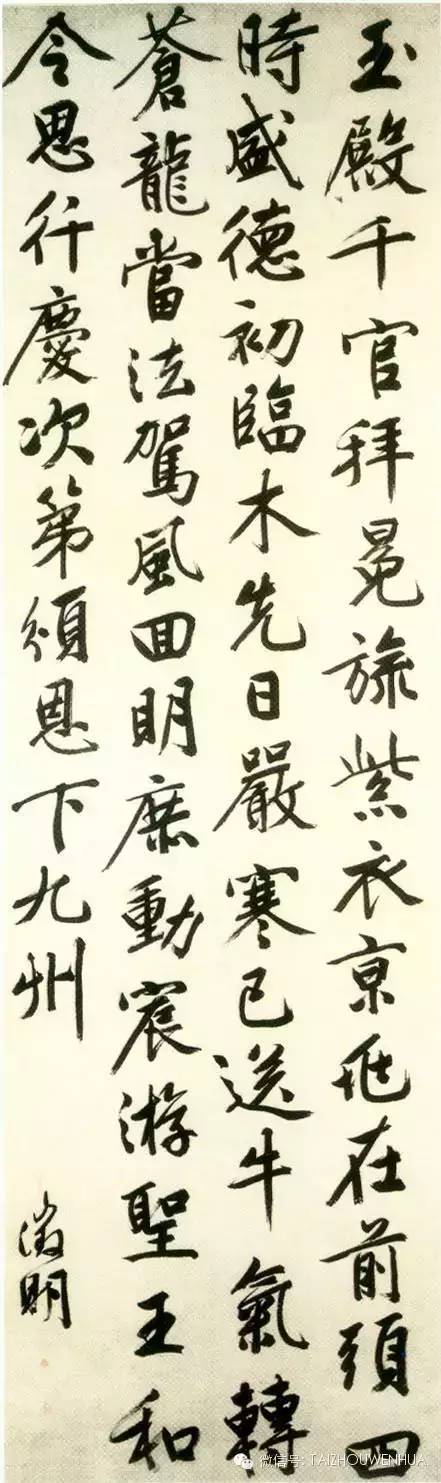 玉殿千官拜冕旒紫衣京兆在前頭四
時盛德初臨木先日嚴寒已送牛氣轉
蒼龍當法駕風回明庶動宸游聖王和
令思行慶次第頒恩下九州
徵明
微信号: TAIZHOUWENHUA